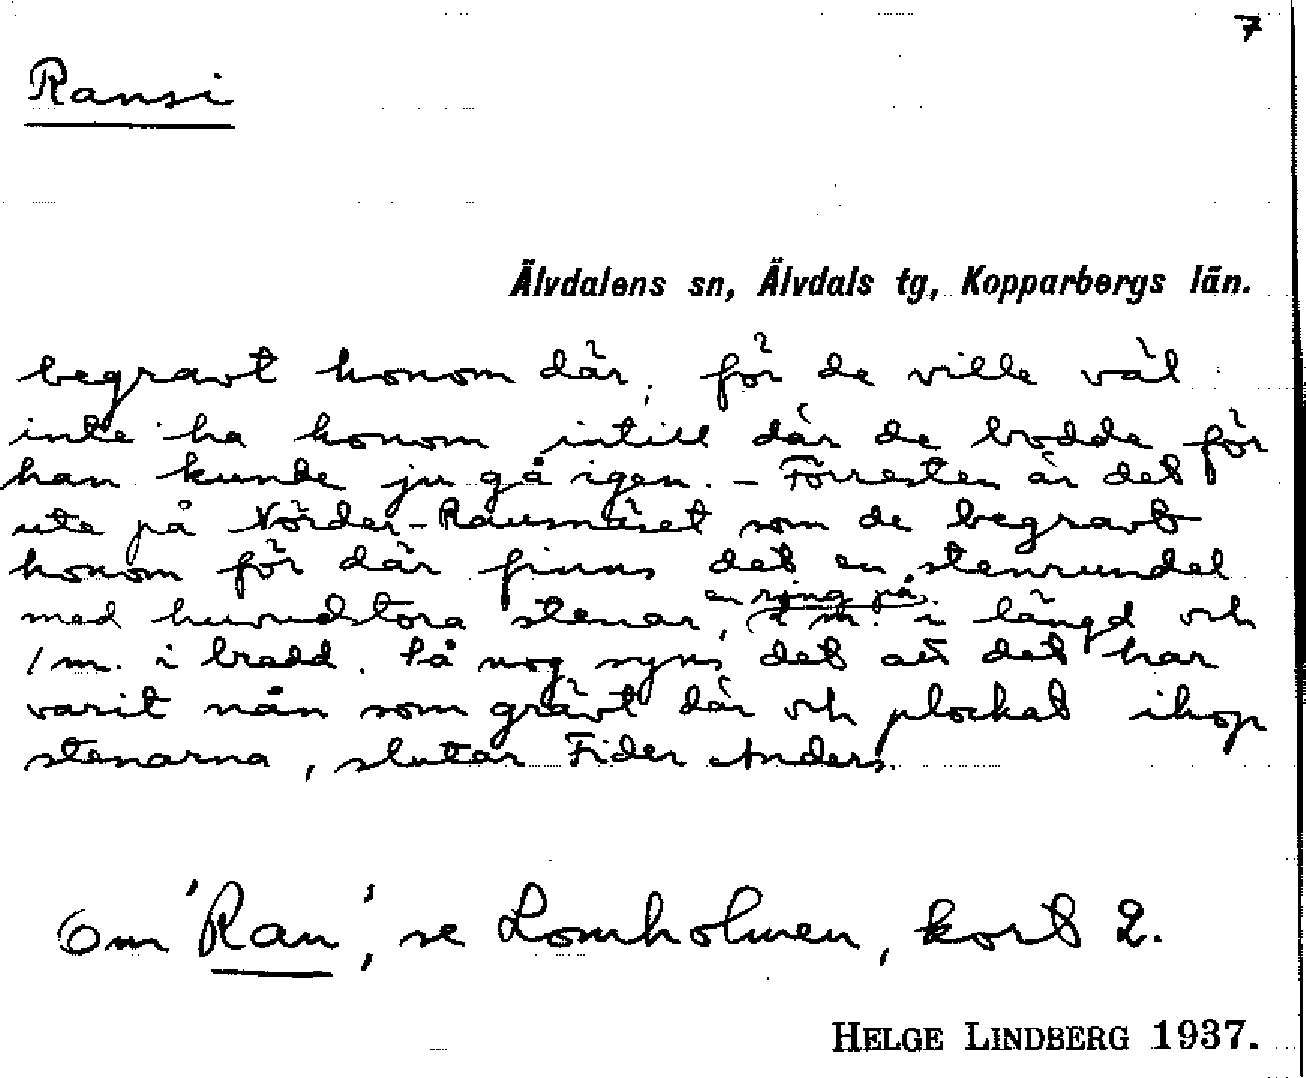 7
Ransi
Älvdalens sn, Älvdals tg, Kopparbergs län.
begravt honom där, för de ville väl
inte ha honom intill där de bodde för
han kunde ju gå igen. – Förresten är det
ute på Nörder-Rausnäset som de begravt
honom för där finns det en stenrundel
med huvudstora stenar, en ring på 2 m. i längd och
1 m. i bredd. Så nog syns det att det har
varit nån som grävt där och plockat ihop
stenarna, slutar Fider Anders.
Om 'Ran', se Lomholmen, kort 2.
HELGE LINDBERG 1937.